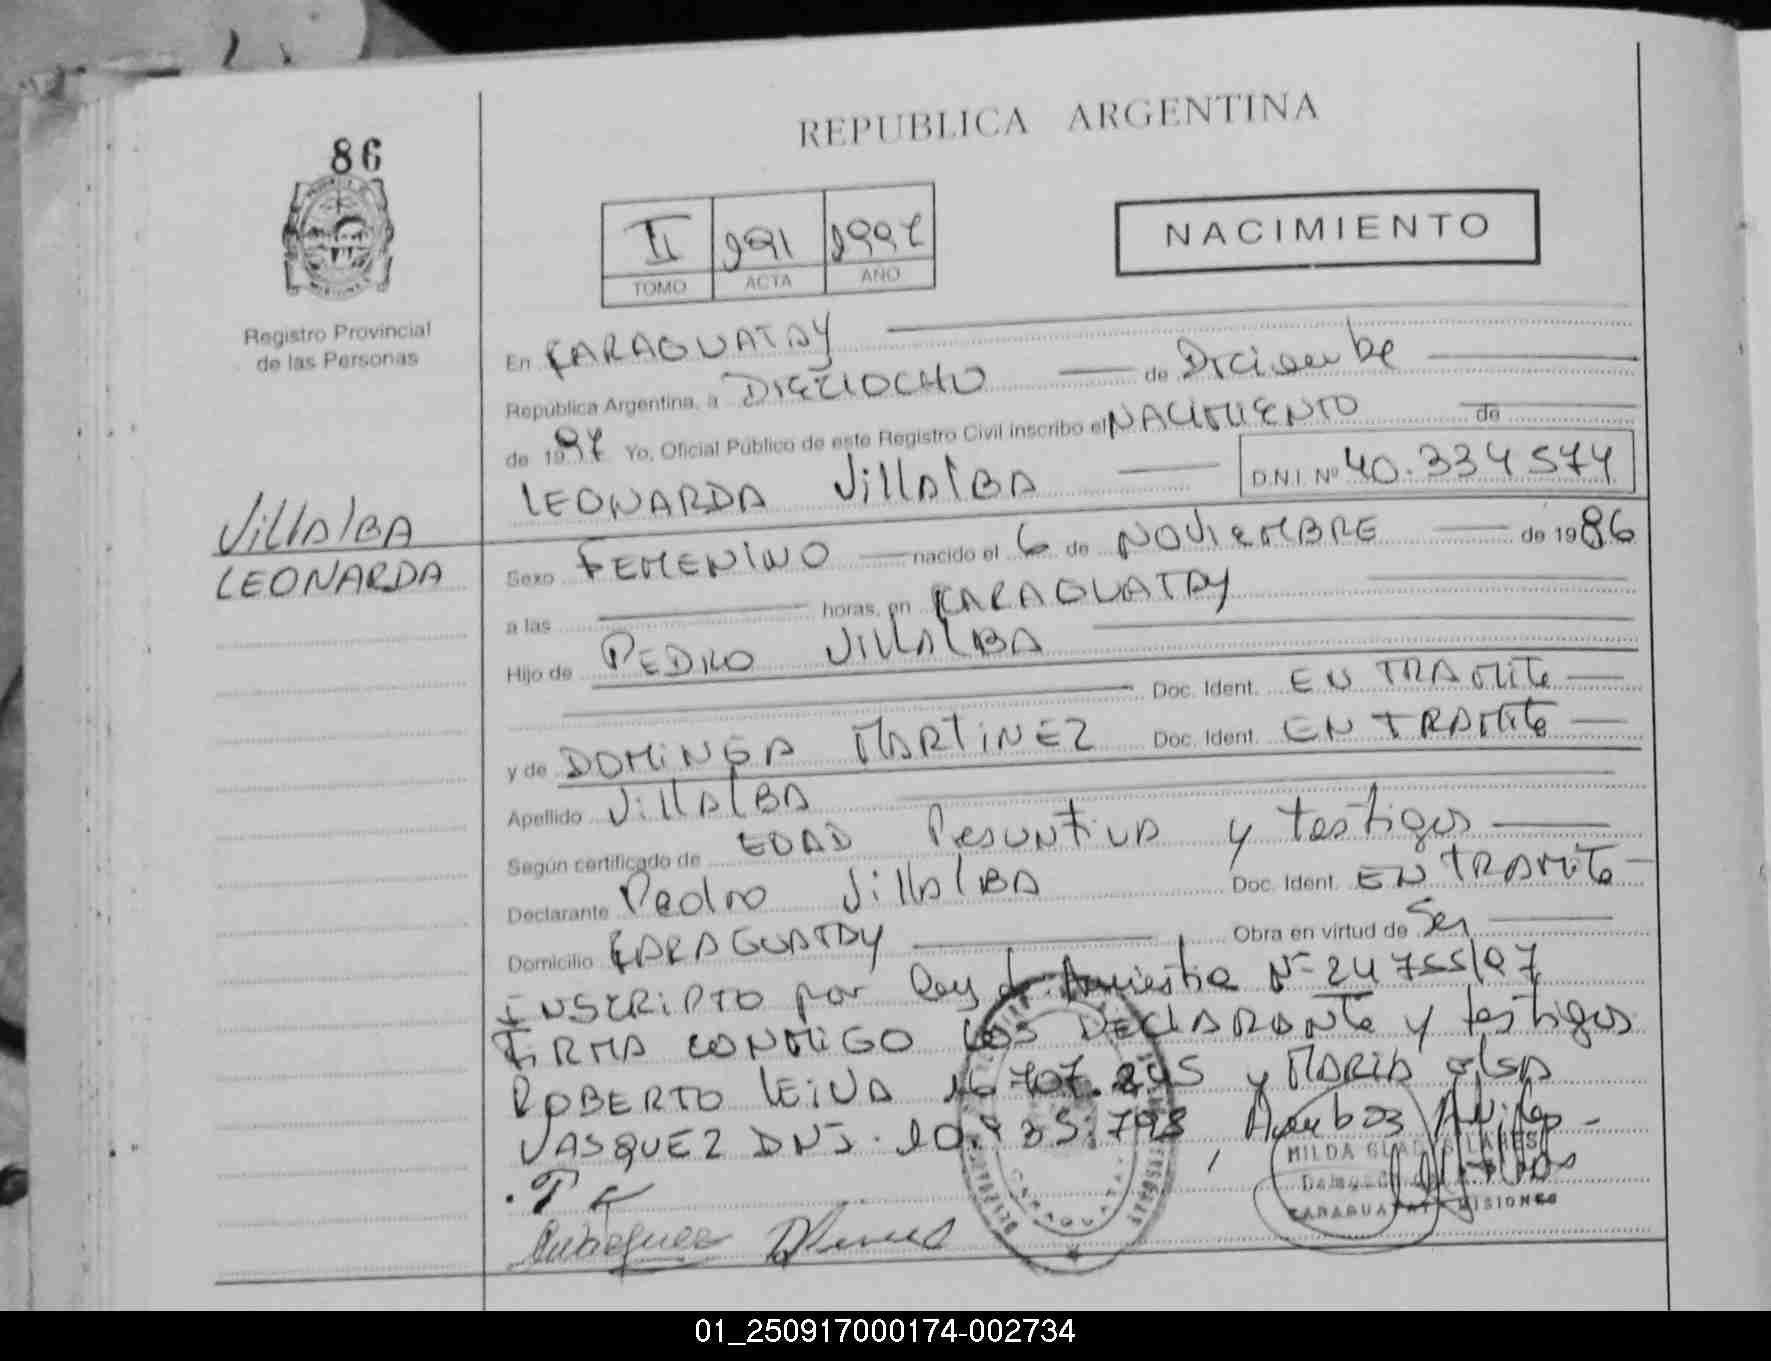 REPUBLICA ARGENTINA
86
II 191 1997
TOMO ACTA AÑO
NACIMIENTO
Registro Provincial
de las Personas
En CARAGUATAY
República Argentina, a DIECIOCHO de Diciembe
de 1997 Yo, Oficial Público de este Registro Civil inscribo el NACIMIENTO de
LEONARDA VillAlBA D.N.I. Nº 40.334574
VillAlBA
LEONARDA
Sexo FEMENINO nacido el 6 de NOViEMBRE de 1986
a las horas, en CARAGUATAY
Hijo de PEDRO VillAlBA
Doc. Ident. EN TRAMITe
y de DOMiNGA MARTiNEZ Doc. Ident. EN TRAMITe
Apellido VillAlBA
Según certificado de EDAD PesuNTiVA y testigos
Declarante Pedro VillAlBA Doc. Ident. EN TRAMiTe
Domicilio CARAGUATAY Obra en virtud de Ser
INSCRiPTO por ley de Amnistia Nº 24755/97
FiRMA CONMiGO los DEClARANTe y testigos
ROBERTO lEiVA 16.707.245 y MARIA elsA
VASQUEZ DNI. 10. 35.798, Ambos
MILDA
CARAGUATAY MISIONES
01_250917000174-002734